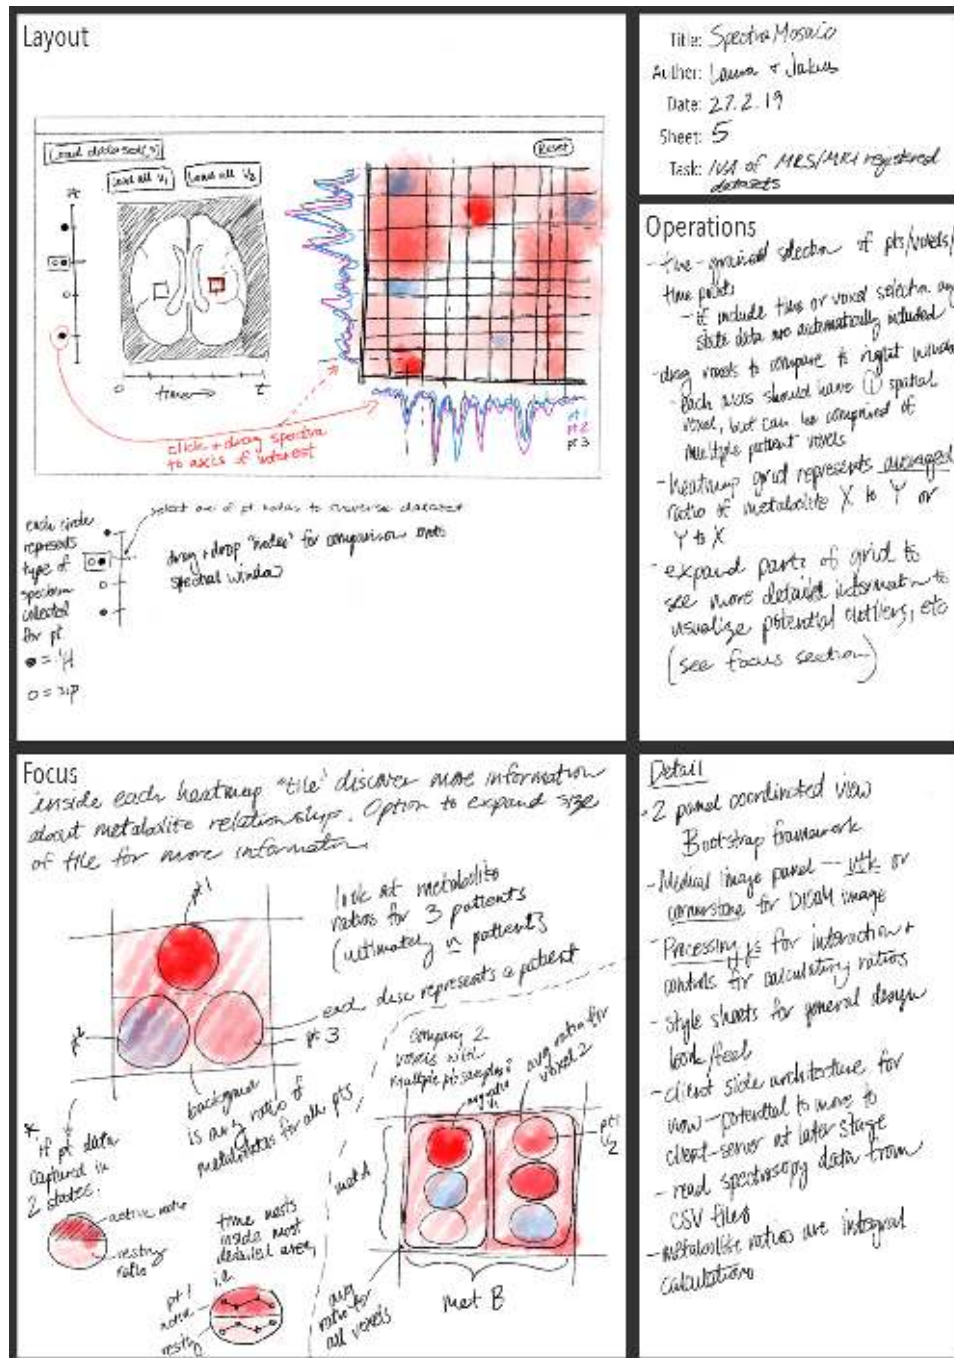 Layout
Load dataset(s)
Load all V1
Load all V2
Reset
Pt
0
time
t
click + drag spectra
to axis of interest
pt 1
pt 2
pt 3
each circle
represents
type of
spectrum
collected
for pt.
= 1H
= 31P
select one of pt nodes to traverse dataset
drag + drop "nodes" for comparison onto
spectral window
Title: SpectraMosaic
Author: Laura +
Date: 27.2.19
Sheet: 5
Task: IVA of MRS/MRI registered
datasets
Operations
- fine-grained selection of pts/voxels/
time points
- if include time or voxel selection any
state data are automatically included
- drag voxels to compare to right window
- each axis should have 1 spatial
voxel, but can be comprised of
multiple patient voxels
- heatmap grid represents averaged
ratio of metabolite X to Y or
Y to X
- expand parts of grid to
see more detailed information to
visualize potential outliers, etc
(see focus section)
Focus
inside each heatmap "tile" discover more information
about metabolite relationship. Option to expand size
of tile for more information.
pt 1
look at metabolite
ratios for 3 patients
(ultimately n patients)
each disc represents a patient
pt 2
pt 3
background
is avg ratio of
metabolites for all pts
* if pt data
captured in
2 states.
active ratio
resting
ratio
time nests
inside most
detailed area,
i.e.
pt 1
active
resting
compare 2
voxels with
multiple pt samples
avg ratio
V1
avg ratio for
voxel 2
pt 1
V2
met A
met B
avg
ratio for
all voxels
Detail
- 2 panel coordinated view
Bootstrap framework
- Medical image panel - vtk or
cornerstone for DICOM image
- Processing js for interaction +
controls for calculating ratios
- style sheets for general design
look/feel
- client side architecture for
view - potential to move to
client-server at later stage
- read spectroscopy data from
CSV files
- metabolite ratios are integral
calculations